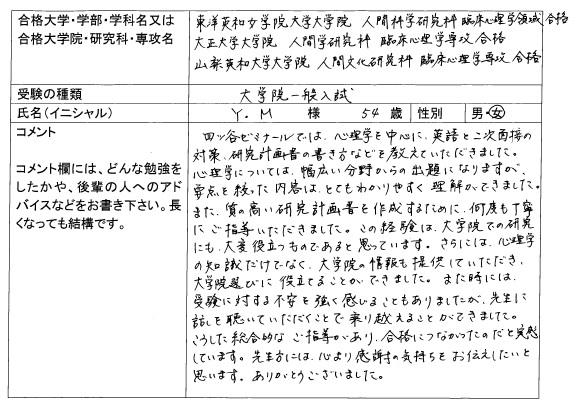 合格大学・学部・学科名又は
合格大学院・研究科・専攻名
東洋英和女学院大学大学院 人間科学研究科 臨床心理学領域 合格
大正大学大学院 人間学研究科 臨床心理学専攻 合格
山梨英和大学大学院 人間文化研究科 臨床心理学専攻 合格
受験の種類
大学院一般入試
氏名(イニシャル)
Y.M 様 54 歳 性別 男・女
コメント
コメント欄には、どんな勉強を
したかや、後輩の人へのアド
バイスなどをお書き下さい。長
くなっても結構です。
四ッ谷ゼミナールでは、心理学を中心に、英語と二次面接の
対策、研究計画書の書き方などを教えていただきました。
心理学については、幅広い分野からの出題になりますが、
要点を絞った内容は、とてもわかりやすく理解ができました。
また、質の高い研究計画書を作成するために、何度も丁寧
にご指導いただきました。この経験は、大学院での研究
にも、大変役立つものであると思っています。さらには、心理学
の知識だけでなく、大学院の情報も提供していただき、
大学院選びに役立てることができました。また時には、
受験に対する不安を強く感じることもありましたが、先生に
話しを聴いていただくことで乗り越えることができました。
こうした総合的なご指導があり、合格につながったのだと実感
しています。先生方には、心より感謝の気持ちをお伝えしたいと
思います。ありがとうございました。